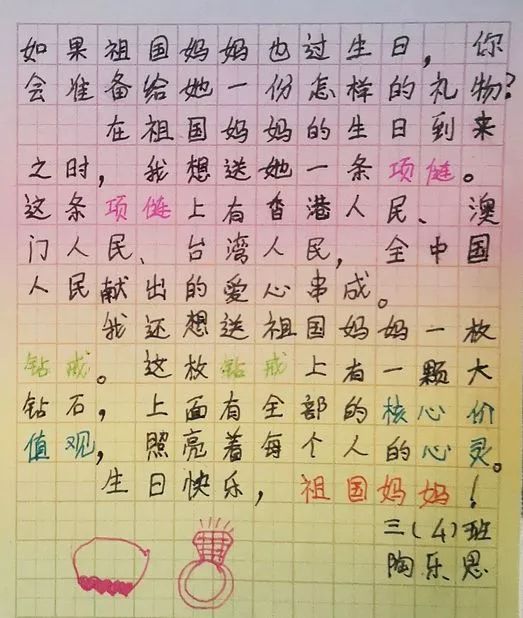 如果祖国妈妈也过生日，你
会准备给她一份怎样的礼物?
在祖国妈妈的生日到来
之时，我想送她一条项链。
这条项链上有香港人民、澳
门人民、台湾人民，全中国
人民献出的爱心串成。
我还想送祖国妈妈一枚
钻戒。这枚钻戒上有一颗大
钻石，上面有全部的核心价
值观，照亮着每个人的心灵。
生日快乐，祖国妈妈！
三(4)班
陶乐思